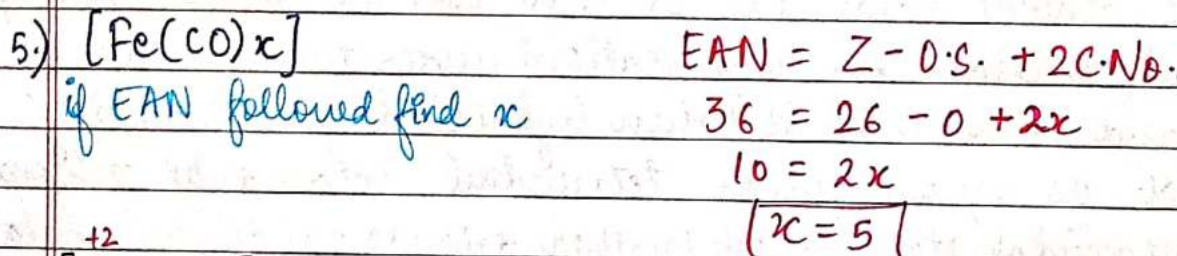 5.) [Fe(CO)x]
if EAN followed find x
EAN = Z - O.S. + 2C.No.
36 = 26 - 0 + 2x
10 = 2x
x = 5
+2